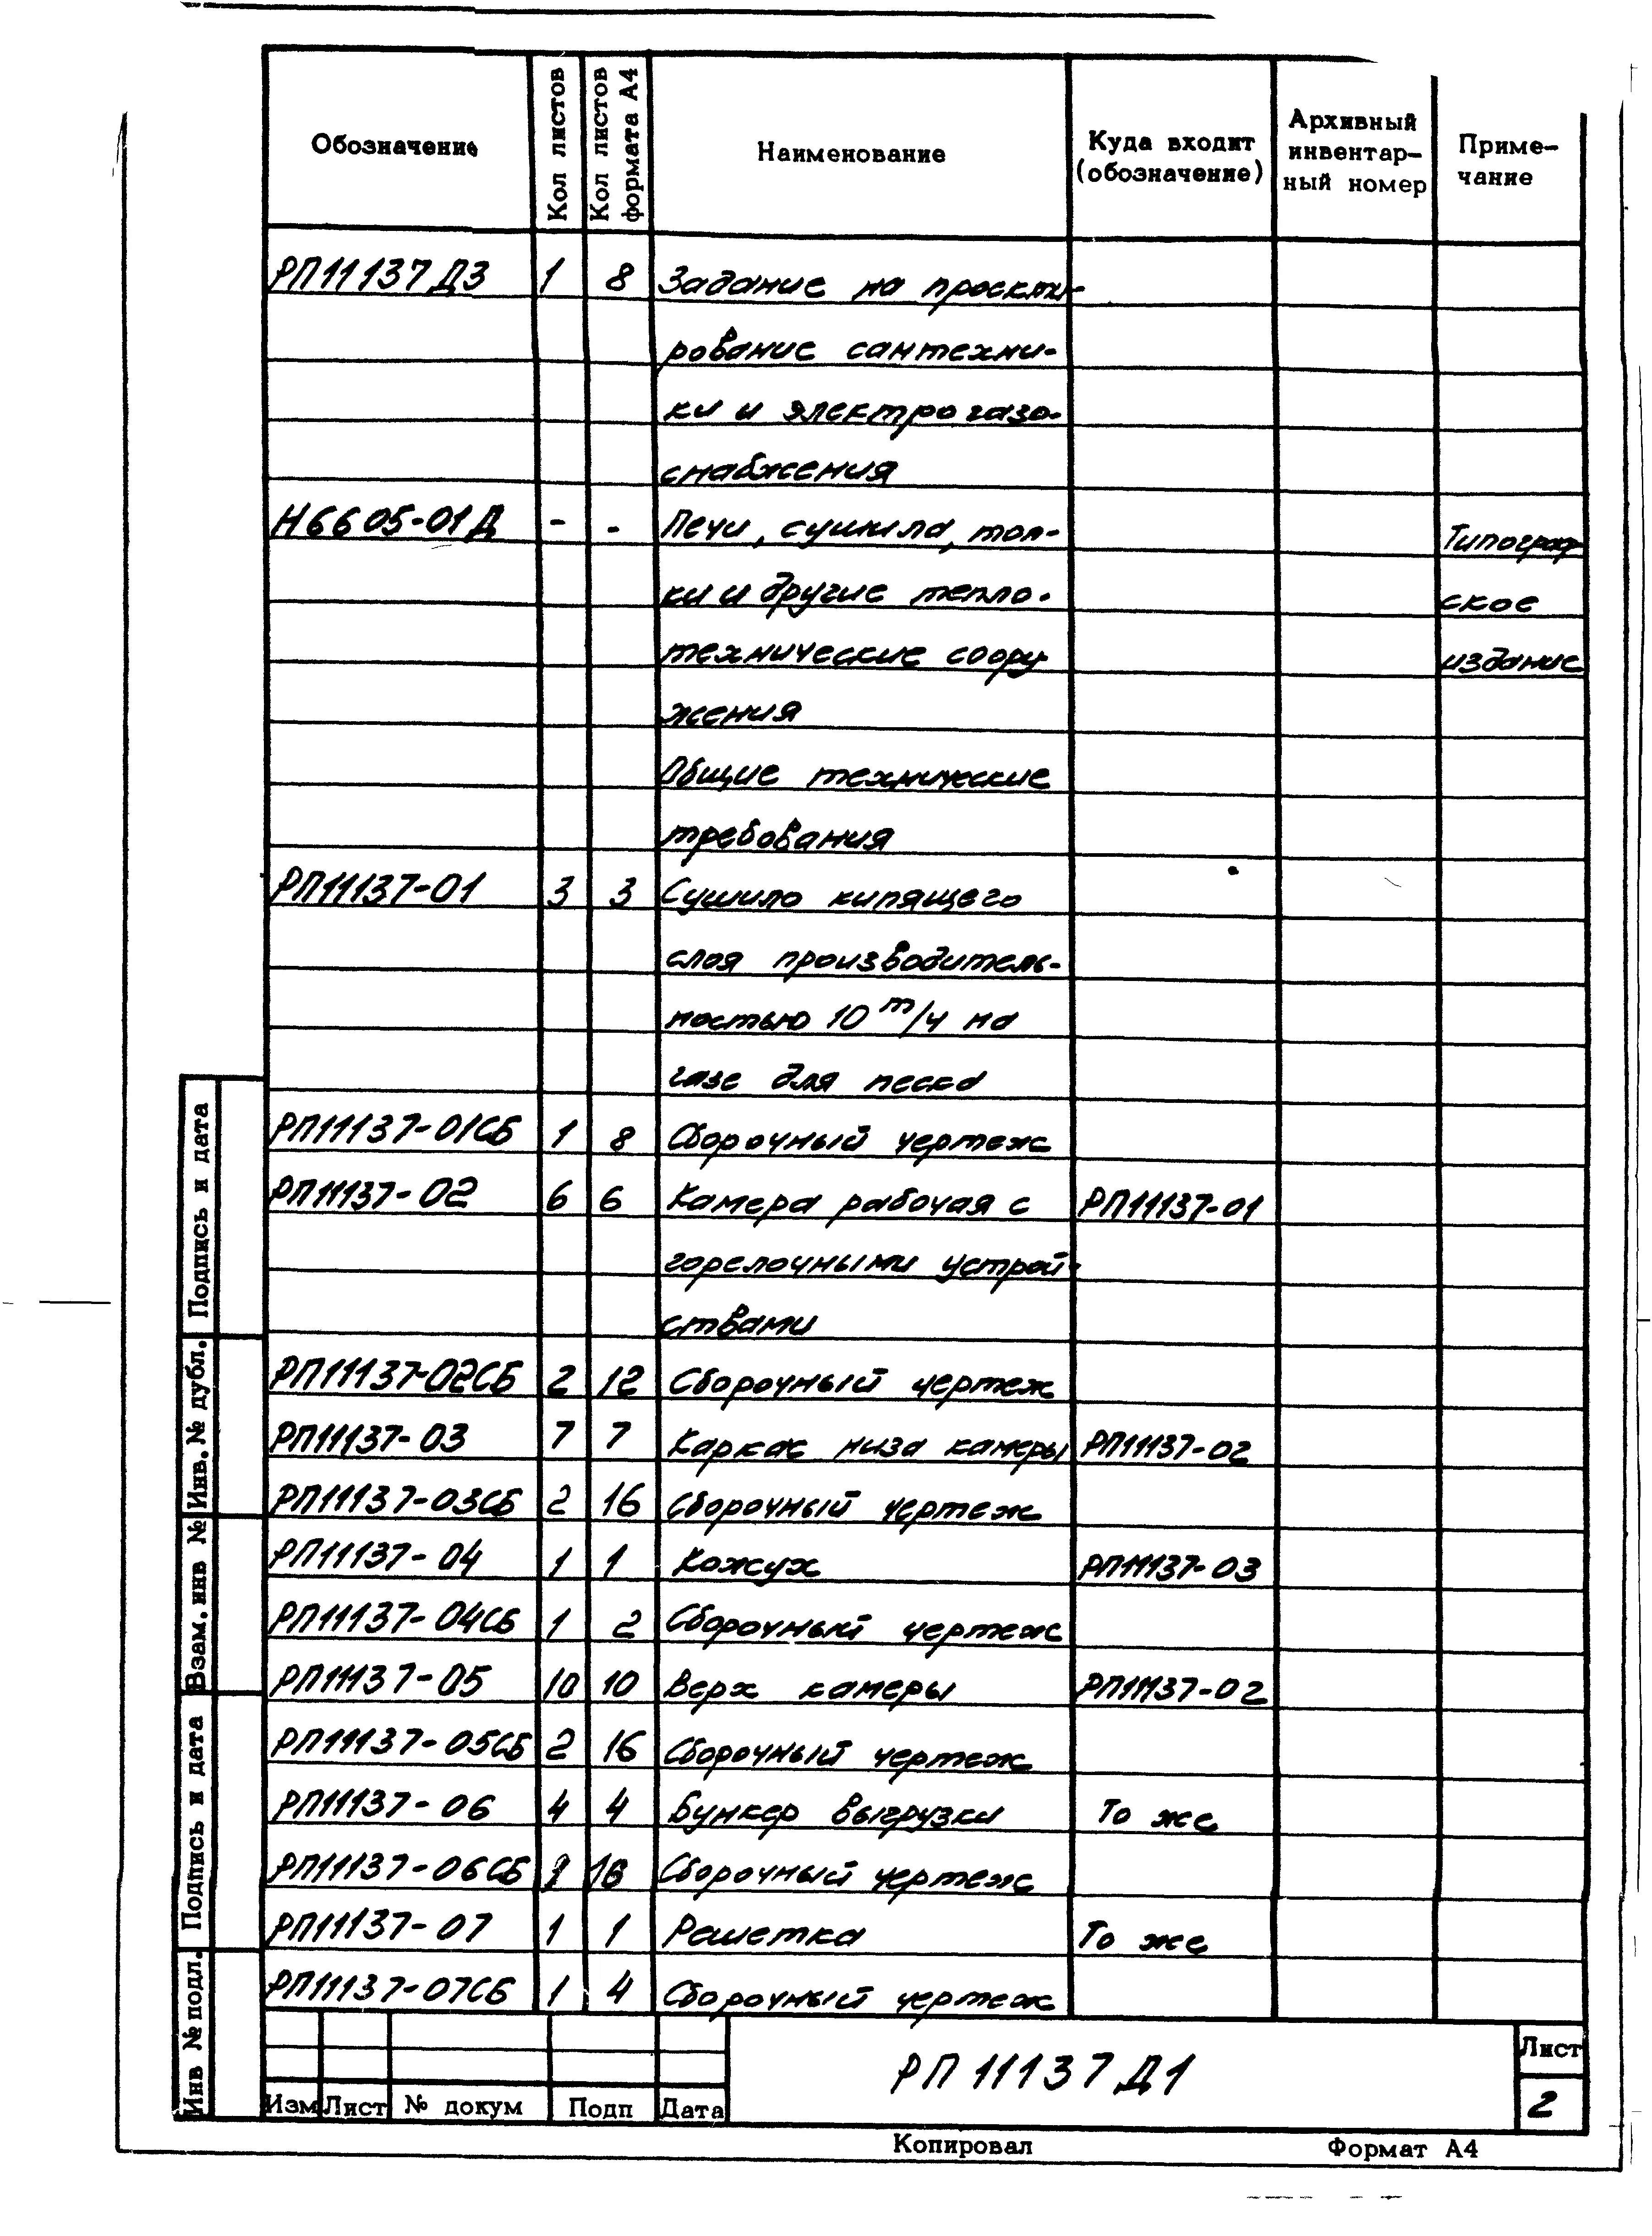 Обозначение
Кол листов
Кол листов формата А4
Наименование
Куда входит (обозначение)
Архивный инвентар-ный номер
Приме-чание
РП11137Д3 1 8 Задание на проекти-
рование сантехни-
ки и электрогазо-
снабжения
Н6605-01Д - - Печи, сушила, топ- Типограф
ки и другие тепло- ское
технические соору- издание
жения
Общие технические
требования
РП11137-01 3 3 Сушило кипящего
слоя производитель-
ностью 10 т/ч на
газе для песка
РП11137-01СБ 1 8 Сборочный чертеж
РП11137-02 6 6 Камера рабочая с РП11137-01
горелочными устрой-
ствами
РП11137-02СБ 2 12 Сборочный чертеж
РП11137-03 7 7 Каркас низа камеры РП11137-02
РП11137-03СБ 2 16 Сборочный чертеж
РП11137-04 1 1 Кожух РП11137-03
РП11137-04СБ 1 2 Сборочный чертеж
РП11137-05 10 10 Верх камеры РП11137-02
РП11137-05СБ 2 16 Сборочный чертеж
РП11137-06 4 4 Бункер выгрузки То же
РП11137-06СБ Сборочный чертеж
РП11137-07 1 1 Решетка То же
РП11137-07СБ 1 4 Сборочный чертеж
Подпись и дата
Инв. № дубл.
Взам. инв №
Подпись и дата
Инв № подл.
Изм Лист № докум Подп Дата
РП 11137 Д1
Лист
2
Копировал Формат А4